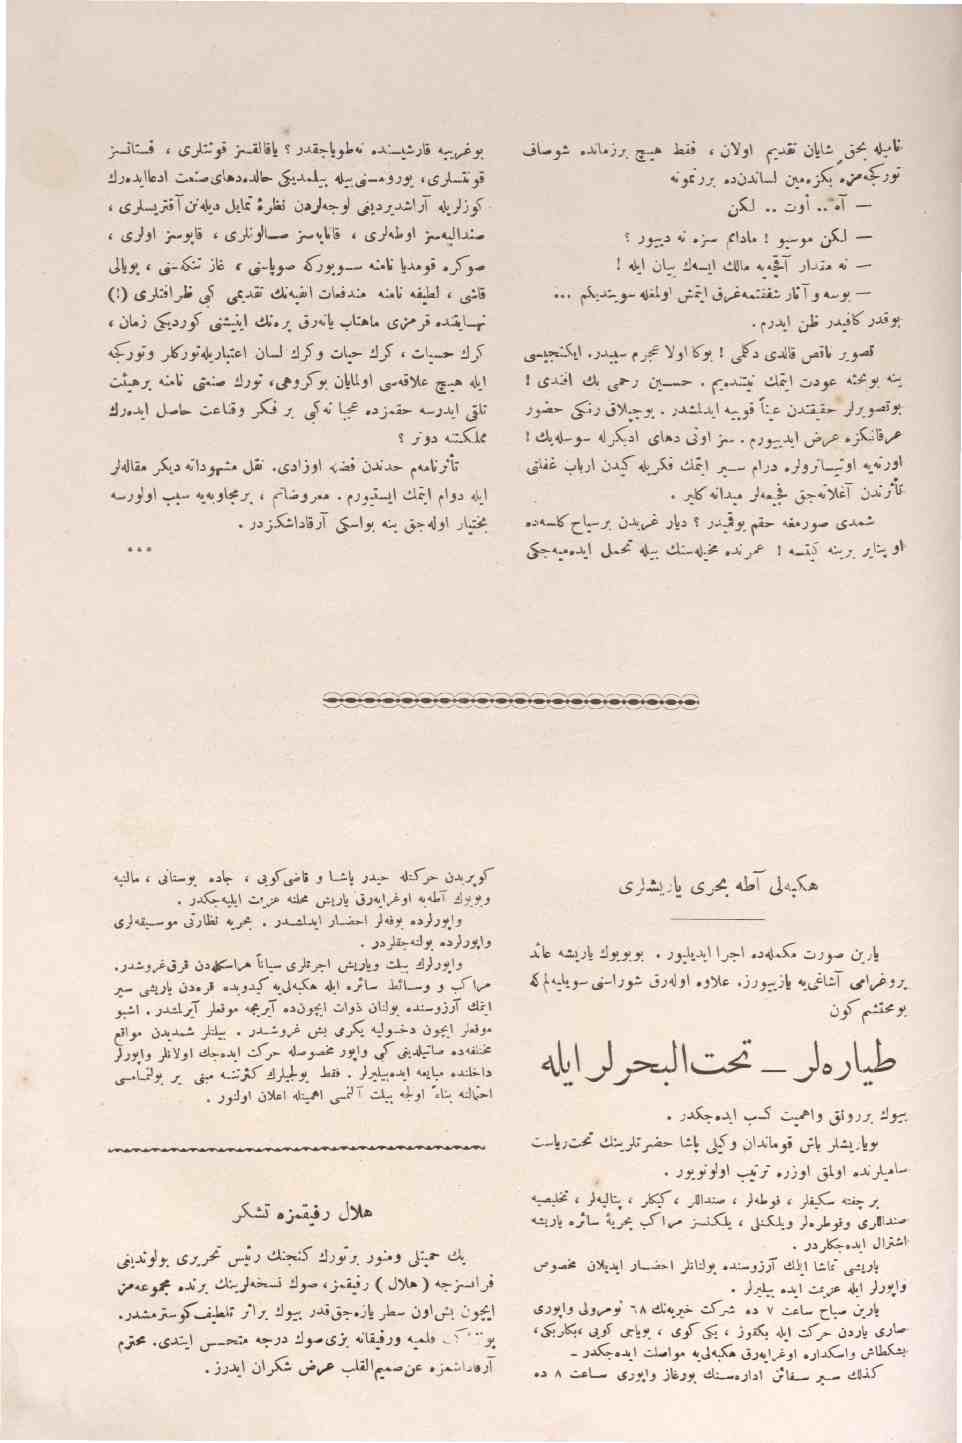 فاميله بحق شايان تقديم اولان ، فقط هيچ برزمانده شوصاف
توركجه‌مزه بكزه‌مين لساندن‌ده بررنمونه
— آه .. أوت .. لكن
— لكن موسيو ! مادام سزه نه دييور ؟
— نه مقدار آقچه‌يه مالك ايسه‌ك بيان ايله !
— بوسه و آثار شفقتمه‌غرق ايتمش اولمغله سويندیكم ...
بوقدر كافيدر ظن ايدرم .
تصوير ناقص قالدى دكلمى ! بوكا اولا عجزم سببدر . ايكنجيسى
ينه بوبحثه عودت ايتمك نيتنده‌يم . حسين رحمى بك افندى !
بوتصويرلر حقيقتدن عيناً قوپيه ايدلمشدر . بوچيپلاق رنكى حضور
عرفانكزه عرض ايدييورم . سز اونى دهاى ادبكزله سوسله‌يك !
اورته‌يه اوتياترولره درام سير ايتمك فكريله كيدن ارباب غفلتى
تأثرندن آغلاته‌جق فجيعه‌لر ميدانه كلير .
شمدى صورمغه حقم يوقميدر ؟ ديار غربدن برسياح كلسه‌ده
او يتاير برينه كيتسه ! عمرنده مخيله‌سنك بيله تحمل ايده‌ميه‌جكى
بوغريبه قارشيسنده نه‌طوياجقدر ؟ ياقالقسز قونتلرى ، فستانسز
قونتسلرى ، يورومسنى‌بيله بيلمديكى حالده‌دهاى‌صنعت ادعاايده‌رك
كوزلريله آراشديرديغى لوجه‌لردن نظرۀ تمايل ديله‌نن آقتريسلرى ،
صنداليه‌سز اوطه‌لرى ، قاناپه‌سز صالونلرى ، قاپوسز اولرى ،
صوكره قومديا نامنه سوپوركه صوپاسنى ، غاز تنكه‌سنى ، بويالى
قاشى ، لطيفه نامنه مندفعات انفيه‌نك تقديمى كبى ظرافتلرى (!)
نهايتنده قرمزى ماهتاب يانه‌رق پرده‌نك اينيشنى كورديكى زمان ،
كرك حسيات ، كرك حيات وكرك لسان اعتباريله‌توركلر وتوركجه
ايله هيچ علاقه‌سى اولمايان بوكروهى ، تورك صنعتى نامنه برهيئت
تلقى ايدرسه حقمزده عجبا نه‌كبى بر فكر وقناعت حاصل ايده‌رك
مملكتنه دونر ؟
تأثرنامه‌م حددن فضله اوزادى . نقل مشهوداته ديكر مقاله‌لر
ايله دوام ايتمك ايسته‌يورم . معروضاتم ، برمجاوبه‌يه سبب اولورسه
بختيار اوله‌جق ينه بواسكى آرقاداشكزدر .
* * *
هكبه‌لى آطه بحرى ياريشلرى
يارين صورت مكمله‌ده اجرا ايديليور . بوبويوك ياريشه عائد
پروغرامى آشاغى‌يه يازييورز . علاوه اوله‌رق شوراسنى سويليه‌لم كه
بو محتشم كون
طياره‌لر — تحت‌البحرلر ايله
بيوك بررونق واهميت كسب ايده‌جكدر .
بوياريشلر باش قوماندان وكيلى پاشا حضرتلرينك تحت‌رياست
ساميلرنده اولمق اوزره ترتيب اولونويور .
بر چفته سكيفلر ، فوطه‌لر ، صنداللر ، كيكلر ، پتاليه‌لر ، تخليصيه
صنداللرى وفوطره‌لر ويلكنلى ، يلكنسز مراكب بحريۀ سائره ياريشه
اشتراك ايده‌جكلردر .
ياريشى تماشا ايتمك آرزوسنده بولنانلر احضار ايديلان مخصوص
واپورلر ايله عزيمت ايده بيليرلر .
يارين صباح ساعت ٧ ده شركت خيريه‌نك ٦٨ نومرولى واپورى
صارى ياردن حركت ايله بكقوز ، يكى كوى ، بوياجى كويى ، ببك ،
بشكطاش واسكداره اوغرايه‌رق هكبه‌لى‌يه مواصلت ايده‌جكدر –
كذلك سير سفائن اداره‌سنك بورغاز واپورى ساعت ٨ ده
كوپريدن حركتله حيدر پاشا و قاضى‌كويى ، جاده بوستانى ، مالتپه
وبويوك آطه‌يه اوغرايه‌رق ياريش محلنه عزيمت ايليه‌جكدر .
واپورلرده بوفه‌لر احضار ايدلمشدر . بحريه نظارتى موسيقه‌لرى
واپورلرده بولنه‌جقلردر .
واپورلرك بيلت وياريش اجرتلرى سياناً هراسكله‌دن قرق‌غروشدر .
مراكب و وسائط سائره ايله هكبه‌لى‌يه كيدوبده قره‌دن ياريشى سير
ايتمك آرزوسنده بولنان ذوات ايچون‌ده آيريجه موقعلر آيرلمشدر . اشبو
موقعلر ايچون دخوليه يكرمى بش غروشدر . بيلتلر شمديدن مواقع
مختلفه‌ده صاتيلديغى كبى واپور مخصوصله حركت ايده‌جك اولانلر واپورلر
داخلنده مبايعه ايده‌بيليرلر . فقط يولجيلرك كثرتنه مبنى ير بولنمامسى
احتمالنه بناءً اولجه بيلت آلنمسى اهميتله اعلان اولنور .
هلال رفيقمزه تشكر
پك حميتلى ومنور برتورك كنجنك رئيس تحريرى بولونديغى
فرانسزجه ( هلال ) رفيقمز ، صوك نسخه‌لرينك برنده مجموعه‌مز
ايچون بش‌اون سطر يازه‌جق‌قدر بيوك براثر تلطيف‌كوسترمشدر .
قلميه ورفيقانه بزى‌صوك درجه متحسس ايتدى . محترم
آرقاداشمزه عن‌صميم‌القلب عرض شكران ايدرز .